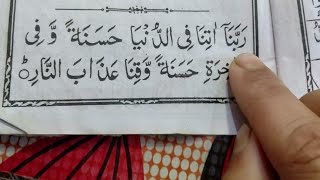 رَبَّنَآ اٰتِنَا فِى الدُّنْيَا حَسَنَةً وَّ فِى
خِرَةِ حَسَنَةً وَّقِنَا عَذَابَ النَّارِ